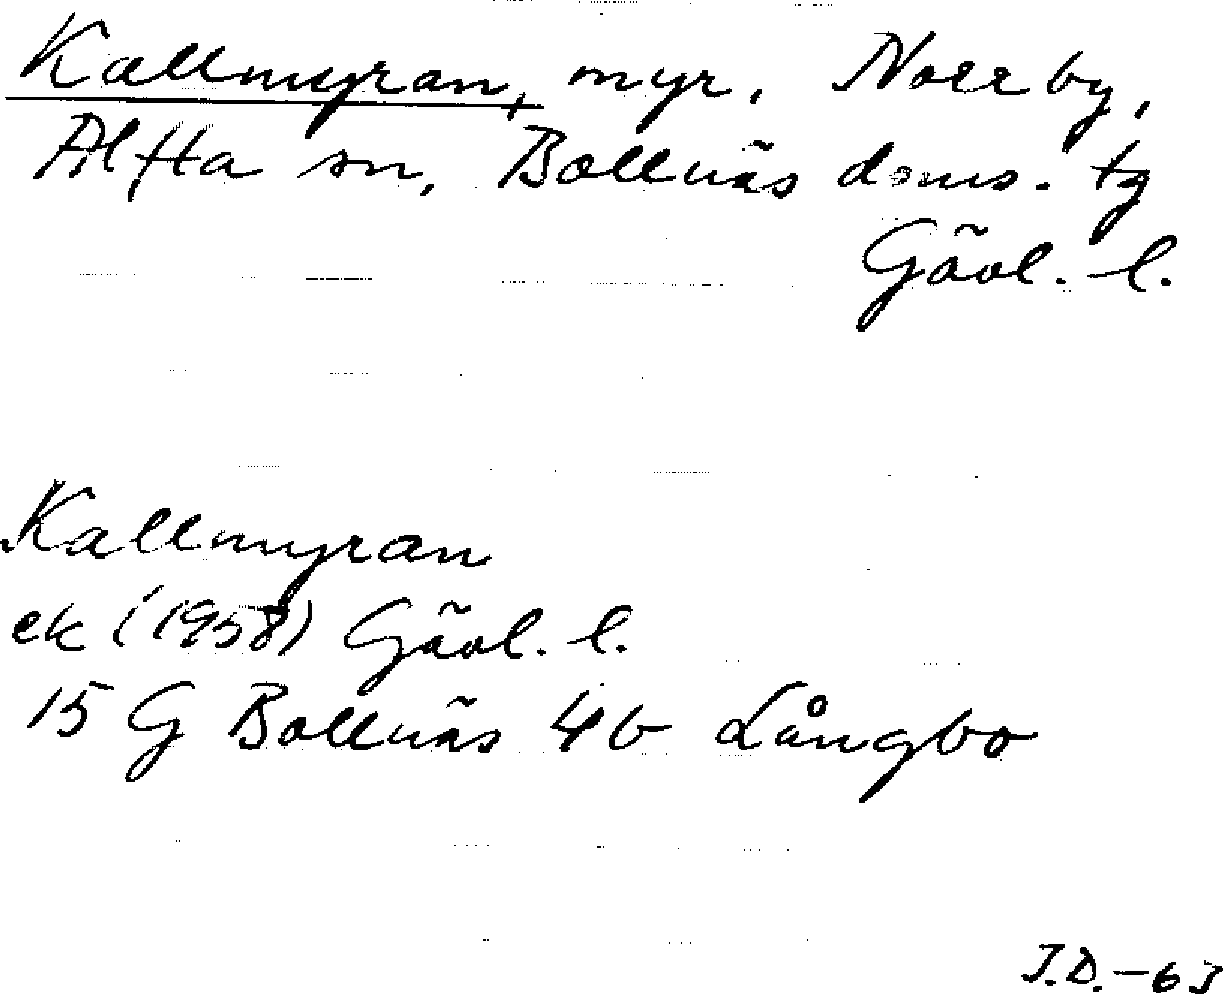 Kallmyran, myr, Norrby,
Alfta sn, Bollnäs doms. tg
Gävl. l.
Kallmyran
ek (1958) Gävl. l.
15 G Bollnäs 4b Långbo
J.D.-63